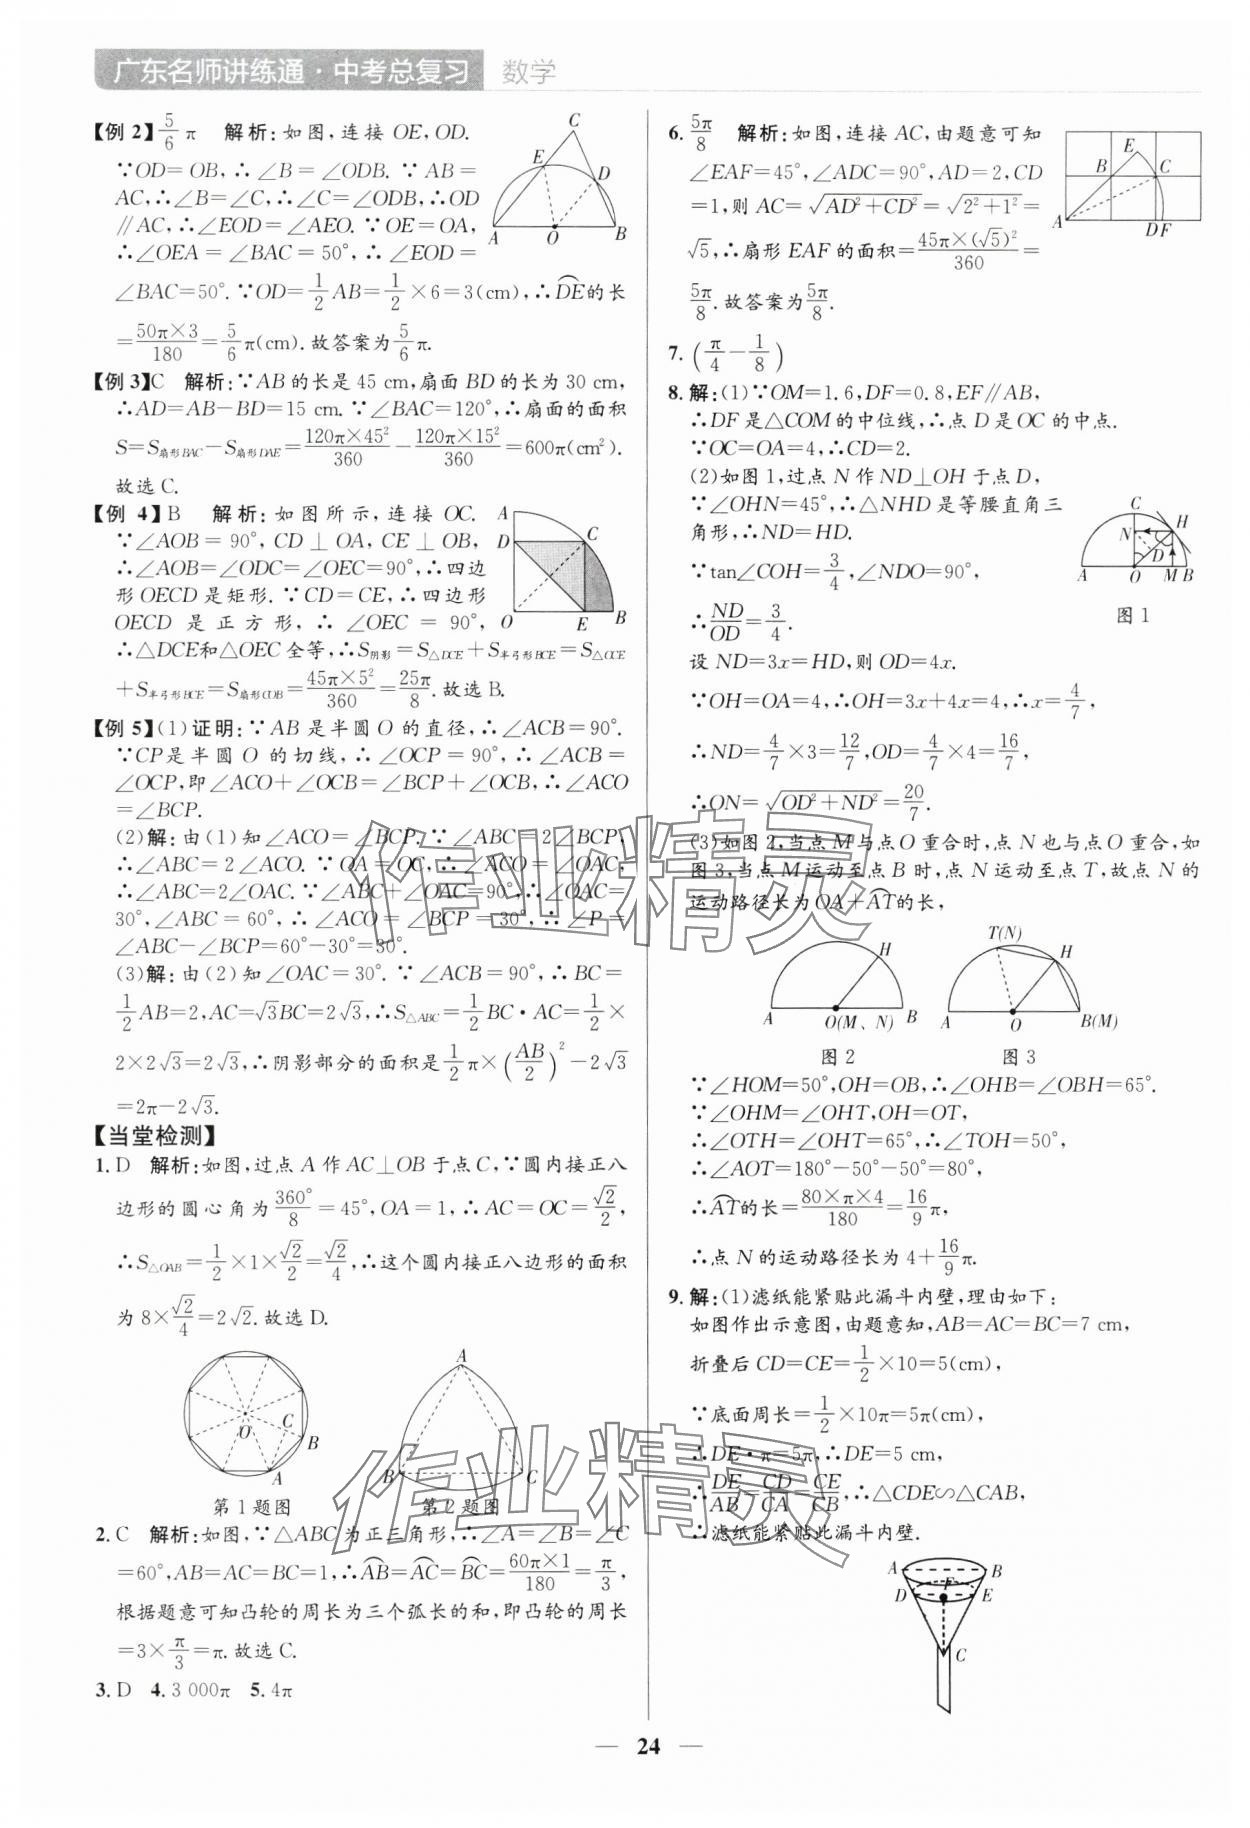 广东名师讲练通·中考总复习 数学
【例 2】5/6 π 解析:如图,连接 OE,OD.
∵OD=OB,∴∠B=∠ODB. ∵AB=
AC,∴∠B=∠C,∴∠C=∠ODB,∴OD
∥AC,∴∠EOD=∠AEO. ∵OE=OA,
∴∠OEA=∠BAC=50°,∴∠EOD=
∠BAC=50°. ∵OD=1/2 AB=1/2×6=3(cm),∴D͡E的长
=50π×3/180=5/6 π(cm).故答案为5/6 π.
C
E
D
A
O
B
【例 3】C 解析:∵AB的长是 45 cm,扇面 BD的长为 30 cm,
∴AD=AB-BD=15 cm. ∵∠BAC=120°,∴扇面的面积
S=S扇形BAC-S扇形DAE=120π×45²/360-120π×15²/360=600π(cm²).
故选 C.
【例 4】B 解析:如图所示,连接 OC.
∵∠AOB=90°,CD⊥OA,CE⊥OB,
∴∠AOB=∠ODC=∠OEC=90°,∴四边
形OECD是矩形. ∵CD=CE,∴四边形
OECD 是正方形,∴∠OEC=90°,
∴△DCE和△OEC全等,∴S阴影=S△DCE+S半弓形BCE=S△OCE
+S半弓形BCE=S扇形COB=45π×5²/360=25π/8.故选 B.
A
D
C
O
E
B
【例 5】(1)证明:∵AB 是半圆 O 的直径,∴∠ACB=90°.
∵CP是半圆 O 的切线,∴∠OCP=90°,∴∠ACB=
∠OCP,即∠ACO+∠OCB=∠BCP+∠OCB,∴∠ACO
=∠BCP.
(2)解:由(1)知∠ACO=∠BCP. ∵∠ABC=2∠BCP,
∴∠ABC=2∠ACO. ∵OA=OC,∴∠ACO=∠OAC,
∴∠ABC=2∠OAC. ∵∠ABC+∠OAC=90°,∴∠OAC=
30°,∠ABC=60°,∴∠ACO=∠BCP=30°,∴∠P=
∠ABC-∠BCP=60°-30°=30°.
(3)解:由(2)知∠OAC=30°. ∵∠ACB=90°,∴BC=
1/2 AB=2,AC=√3BC=2√3,∴S△ABC=1/2 BC·AC=1/2×
2×2√3=2√3,∴阴影部分的面积是1/2 π×(AB/2)²-2√3
=2π-2√3.
【当堂检测】
1.D 解析:如图,过点 A 作 AC⊥OB 于点 C,∵圆内接正八
边形的圆心角为360°/8=45°,OA=1,∴AC=OC=√2/2,
∴S△OAB=1/2×1×√2/2=√2/4,∴这个圆内接正八边形的面积
为 8×√2/4=2√2.故选 D.
O
C
B
A
第 1 题图
A
B
C
第 2 题图
2.C 解析:如图,∵△ABC为正三角形,∴∠A=∠B=∠C
=60°,AB=AC=BC=1,∴A͡B=A͡C=B͡C=60π×1/180=π/3,
根据题意可知凸轮的周长为三个弧长的和,即凸轮的周长
=3×π/3=π.故选 C.
3.D 4.3 000π 5.4π
6.5π/8 解析:如图,连接 AC,由题意可知
∠EAF=45°,∠ADC=90°,AD=2,CD
=1,则 AC=√(AD²+CD²)=√(2²+1²)=
√5,∴扇形 EAF 的面积=45π×(√5)²/360=
5π/8.故答案为5π/8.
E
B
C
A
D F
7.(π/4-1/8)
8.解:(1)∵OM=1.6,DF=0.8,EF∥AB,
∴DF是△COM的中位线,∴点 D 是OC 的中点.
∵OC=OA=4,∴CD=2.
(2)如图 1,过点 N 作 ND⊥OH 于点 D,
∵∠OHN=45°,∴△NHD 是等腰直角三
角形,∴ND=HD.
∵tan∠COH=3/4,∠NDO=90°,
∴ND/OD=3/4.
设 ND=3x=HD,则 OD=4x.
∵OH=OA=4,∴OH=3x+4x=4,∴x=4/7,
∴ND=4/7×3=12/7,OD=4/7×4=16/7,
∴ON=√(OD²+ND²)=20/7.
C
N
H
D
A
O
M B
图 1
(3)如图 2,当点 M与点 O 重合时,点 N 也与点 O 重合,如
图 3,当点 M运动至点 B 时,点 N 运动至点 T,故点 N 的
运动路径长为 OA+A͡T的长,
H
A
O(M、N)
B
图 2
T(N)
H
A
O
B(M)
图 3
∵∠HOM=50°,OH=OB,∴∠OHB=∠OBH=65°.
∵∠OHM=∠OHT,OH=OT,
∴∠OTH=∠OHT=65°,∴∠TOH=50°,
∴∠AOT=180°-50°-50°=80°,
∴A͡T的长=80×π×4/180=16/9 π,
∴点 N 的运动路径长为 4+16/9 π.
9.解:(1)滤纸能紧贴此漏斗内壁,理由如下:
如图作出示意图,由题意知,AB=AC=BC=7 cm,
折叠后 CD=CE=1/2×10=5(cm),
∵底面周长=1/2×10π=5π(cm),
∴DE·π=5π,∴DE=5 cm,
∴DE/AB=CD/CA=CE/CB,∴△CDE∽△CAB,
∴滤纸能紧贴此漏斗内壁.
A
B
D
F
E
C
作业精灵
作业精灵
24